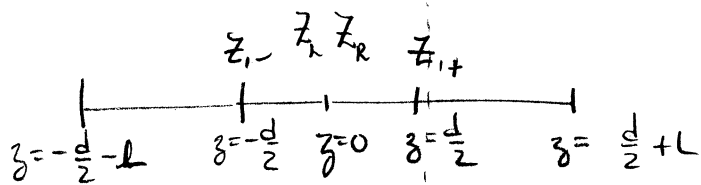 Z₁₋ Z_L Z_R Z₁₊
z=-d/2-L z=-d/2 z=0 z=d/2 z= d/2+L